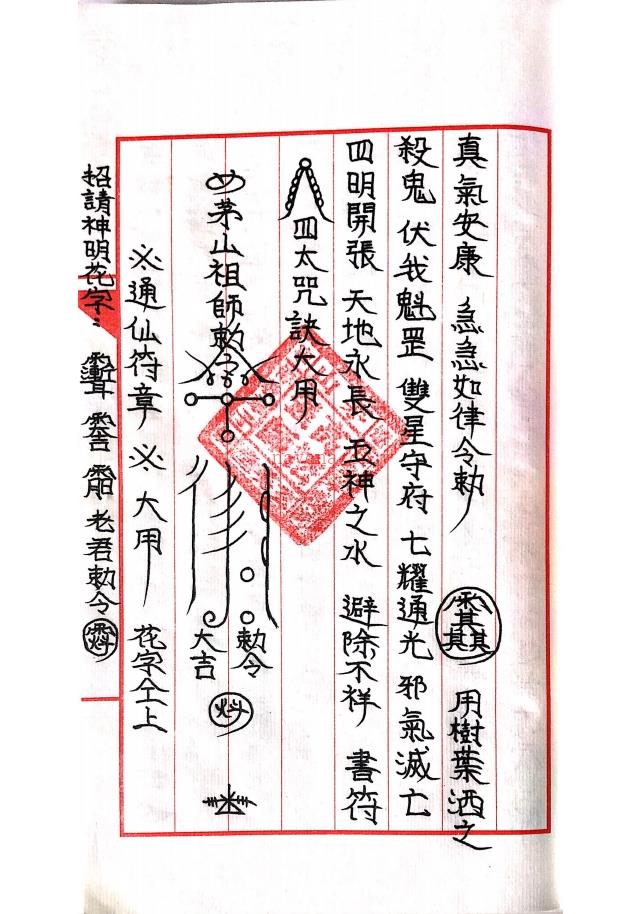 真氣安康 急急如律令勅 用樹葉洒之
殺鬼 伏我魁罡 雙星守府 七耀通光 邪氣滅亡
四明開張 天地永長 五神之水 避除不祥 書符
四太咒訣大用
茅山祖師勅
勅令
大吉
※通仙符章 ※ 大用 花字仝上
招請神明花字: 老君勅令